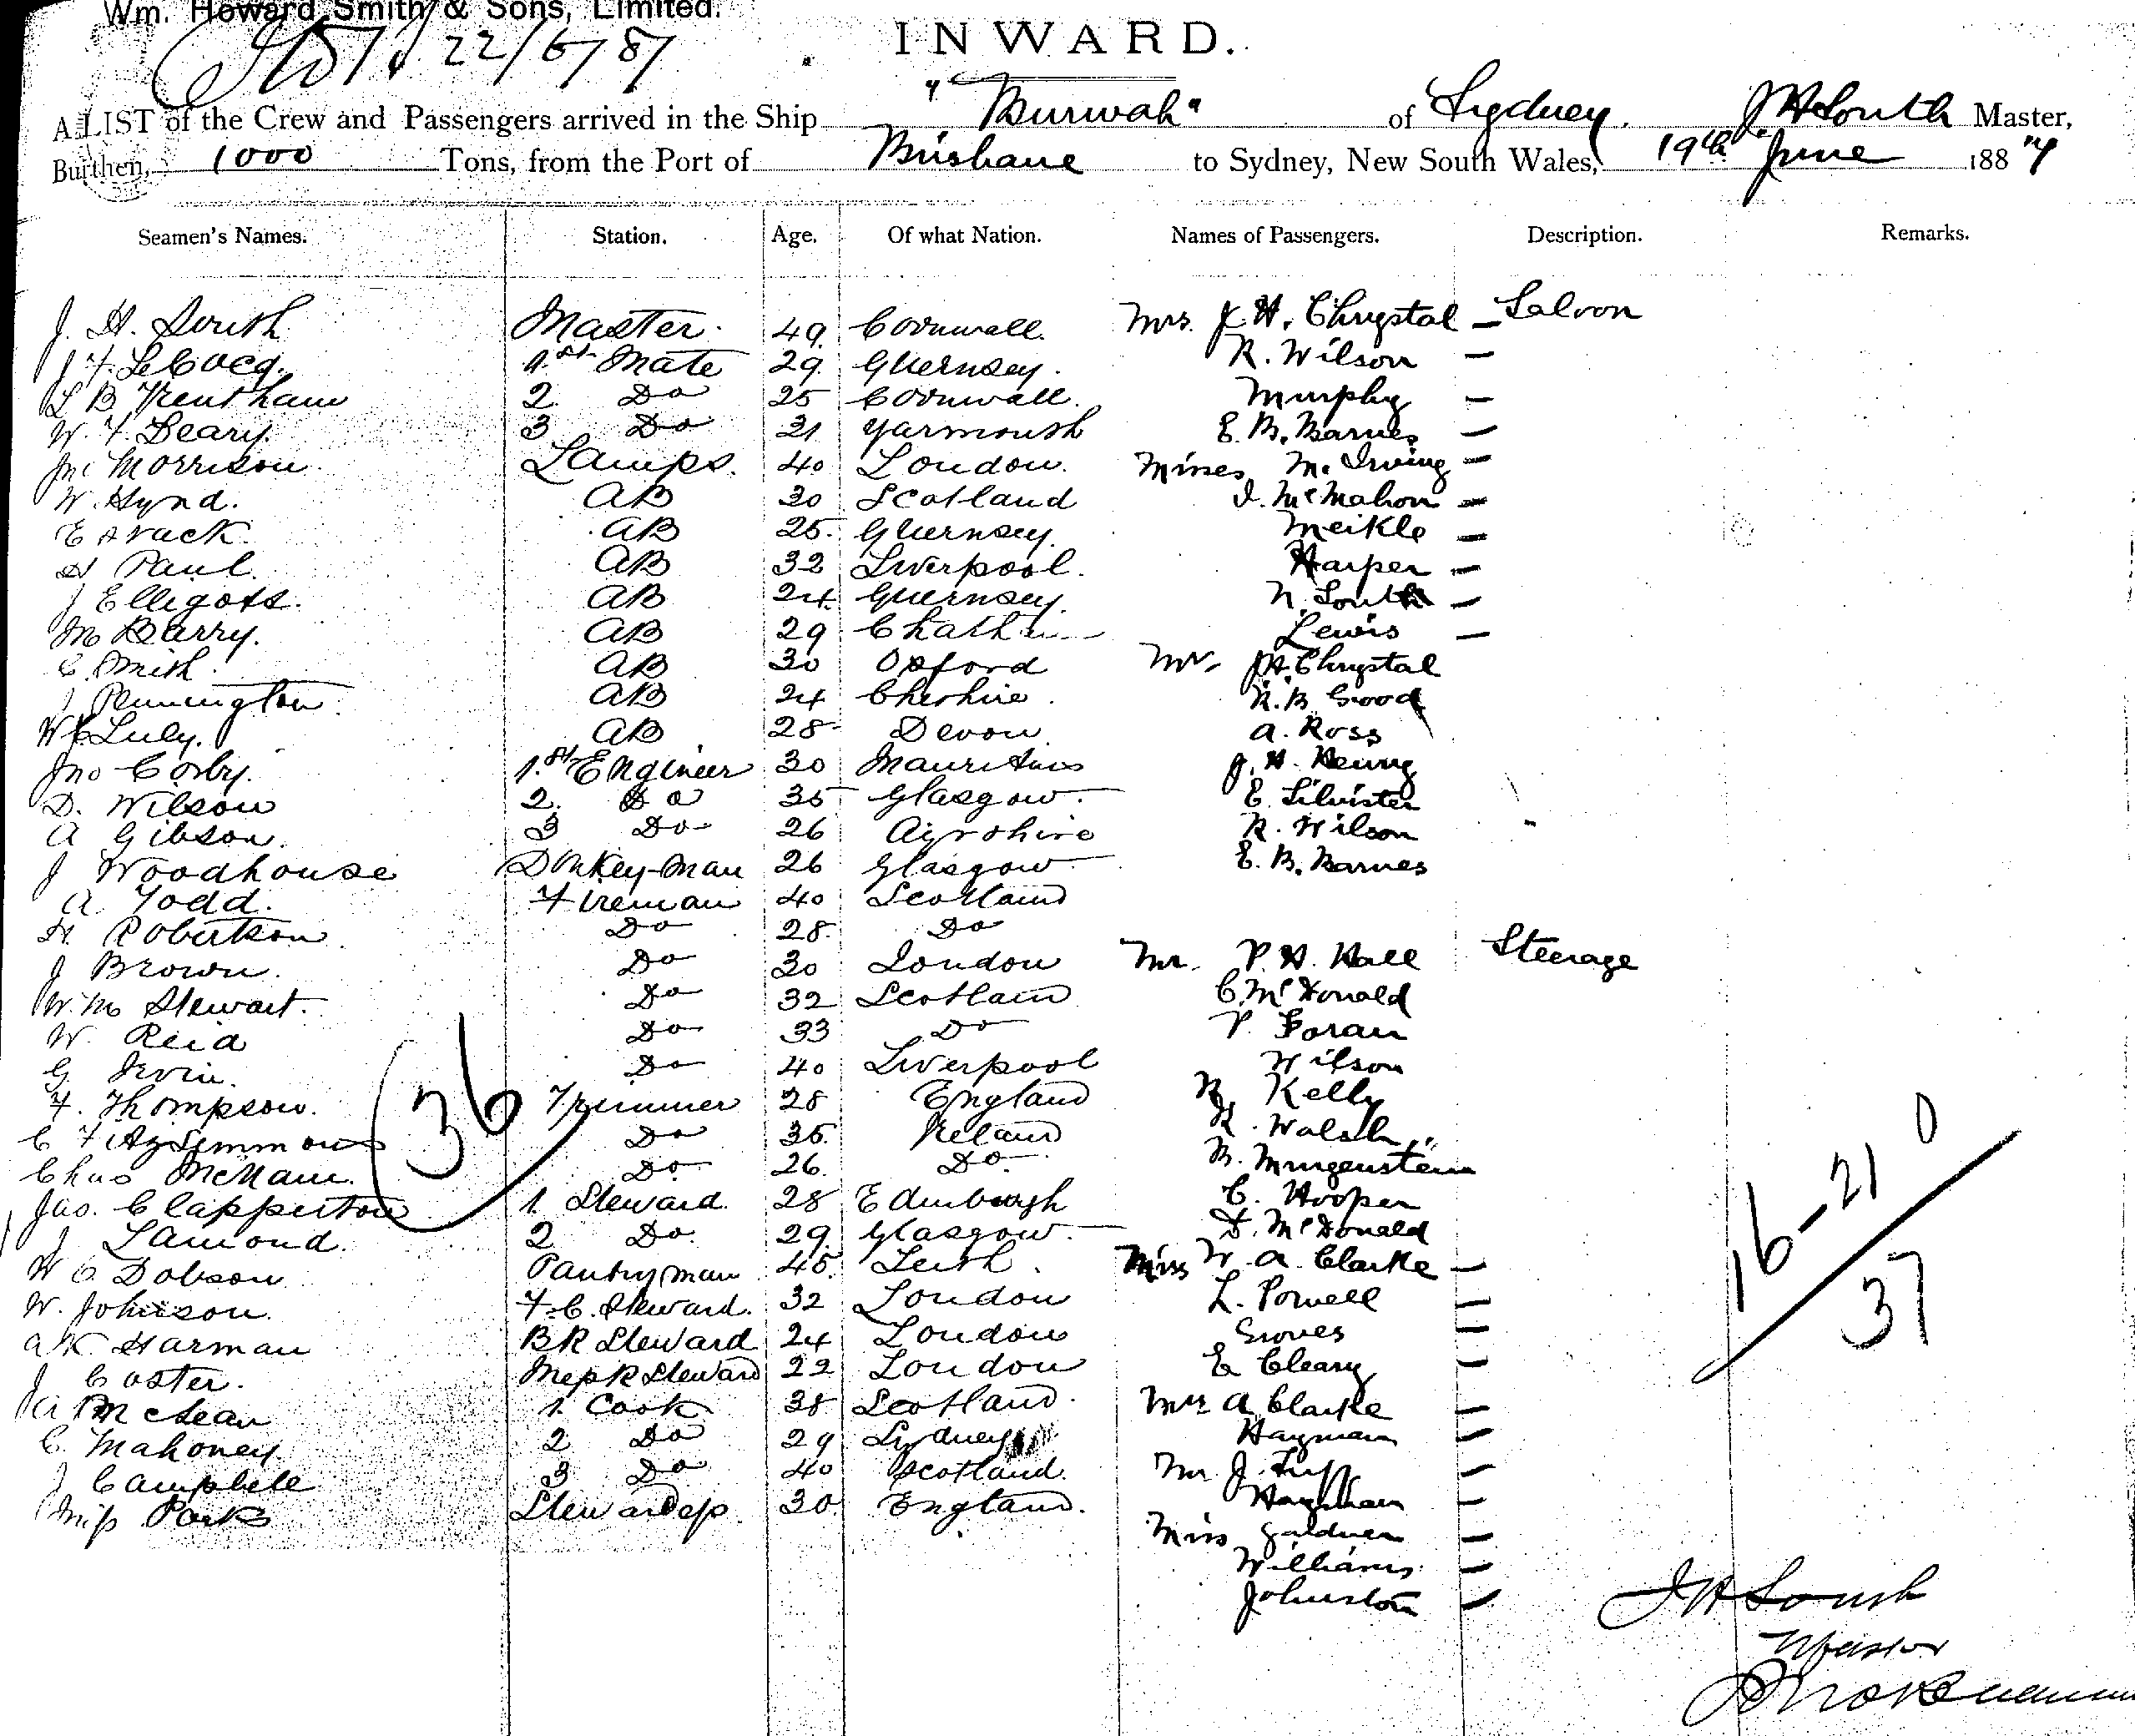 Wm. Howard Smith & Sons, Limited.
22/6/87
INWARD.
A LIST of the Crew and Passengers arrived in the Ship "Burwah" of Sydney. J H South Master,
Burthen, 1000 Tons, from the Port of Brisbane to Sydney, New South Wales, 19th June 1887
Seamen's Names. Station. Age. Of what Nation. Names of Passengers. Description. Remarks.
J. H. South Master. 49 Cornwall. Mrs. J. H. Chrystal — Saloon
J F LeCocq. 1st Mate 29. Guernsey. R. Wilson —
L B Trentham 2 Do 25 Cornwall. Murphy —
W. F. Beary. 3 Do 21 Yarmouth E. B. Barnes —
Morrison Lamps. 40 London. Misses M. Irving —
W. Hynd. AB 30 Scotland I. McMahon —
AB 25. Guernsey. Meikle —
H Paul. AB 32 Liverpool. Harper —
J Elligott. AB 24. Guernsey. N. South —
M Barry. AB 29 Lewis —
C. Smith. AB 30 Oxford Mr. J.H. Chrystal
J Pennington. AB 24 Cheshire. R. B. Good
Luly. AB 28 Devon. A. Ross
Jno Corby. 1st Engineer 30 Mauritius J. H.
D. Wilson 2. Do 35 Glasgow. E. Silvister
A Gibson. 3 Do 26 Ayrshire R. Wilson
J Woodhouse Donkey-man 26 Glasgow E. B. Barnes
A. Todd. Fireman 40 Scotland
H. Robertson Do 28. Do
J Brown. Do 30 London Mr. P. H. Hall Steerage
W. M Stewart. Do 32 Scotland C. McDonald
W. Reid Do 33 Do P. Foran
G Irvin. Do 40 Liverpool Wilson
F. Thompson. Trimmer 28 England Kelly
C Fitzsimmons Do 35. Ireland Walsh
Chas McMann. Do 26. Do. Morgenstein
Jas. Clapperton 1 Steward. 28 Edinburgh C. Hooper
J Lamond. 2 Do. 29 Glasgow. D. McDonald
W C Dobson Pantryman 45. Leith. Miss W. A. Clarke —
W. Johnson. F.C. Steward. 32 London L. Powell —
A K Harman BR Steward 24 London Groves —
J Coster. MessR Steward 22 London E Cleary —
McLean 1. Cook 38 Scotland. Mrs A Clarke —
C. Mahoney. 2 Do 29 Sydney Hayman —
J Campbell 3 Do 40 Scotland. Mr J. —
Miss Parks Stewardess. 30 England. Hayman —
Miss Gardner —
Williams —
Johnston —
36
16-21
37
J H South
Master